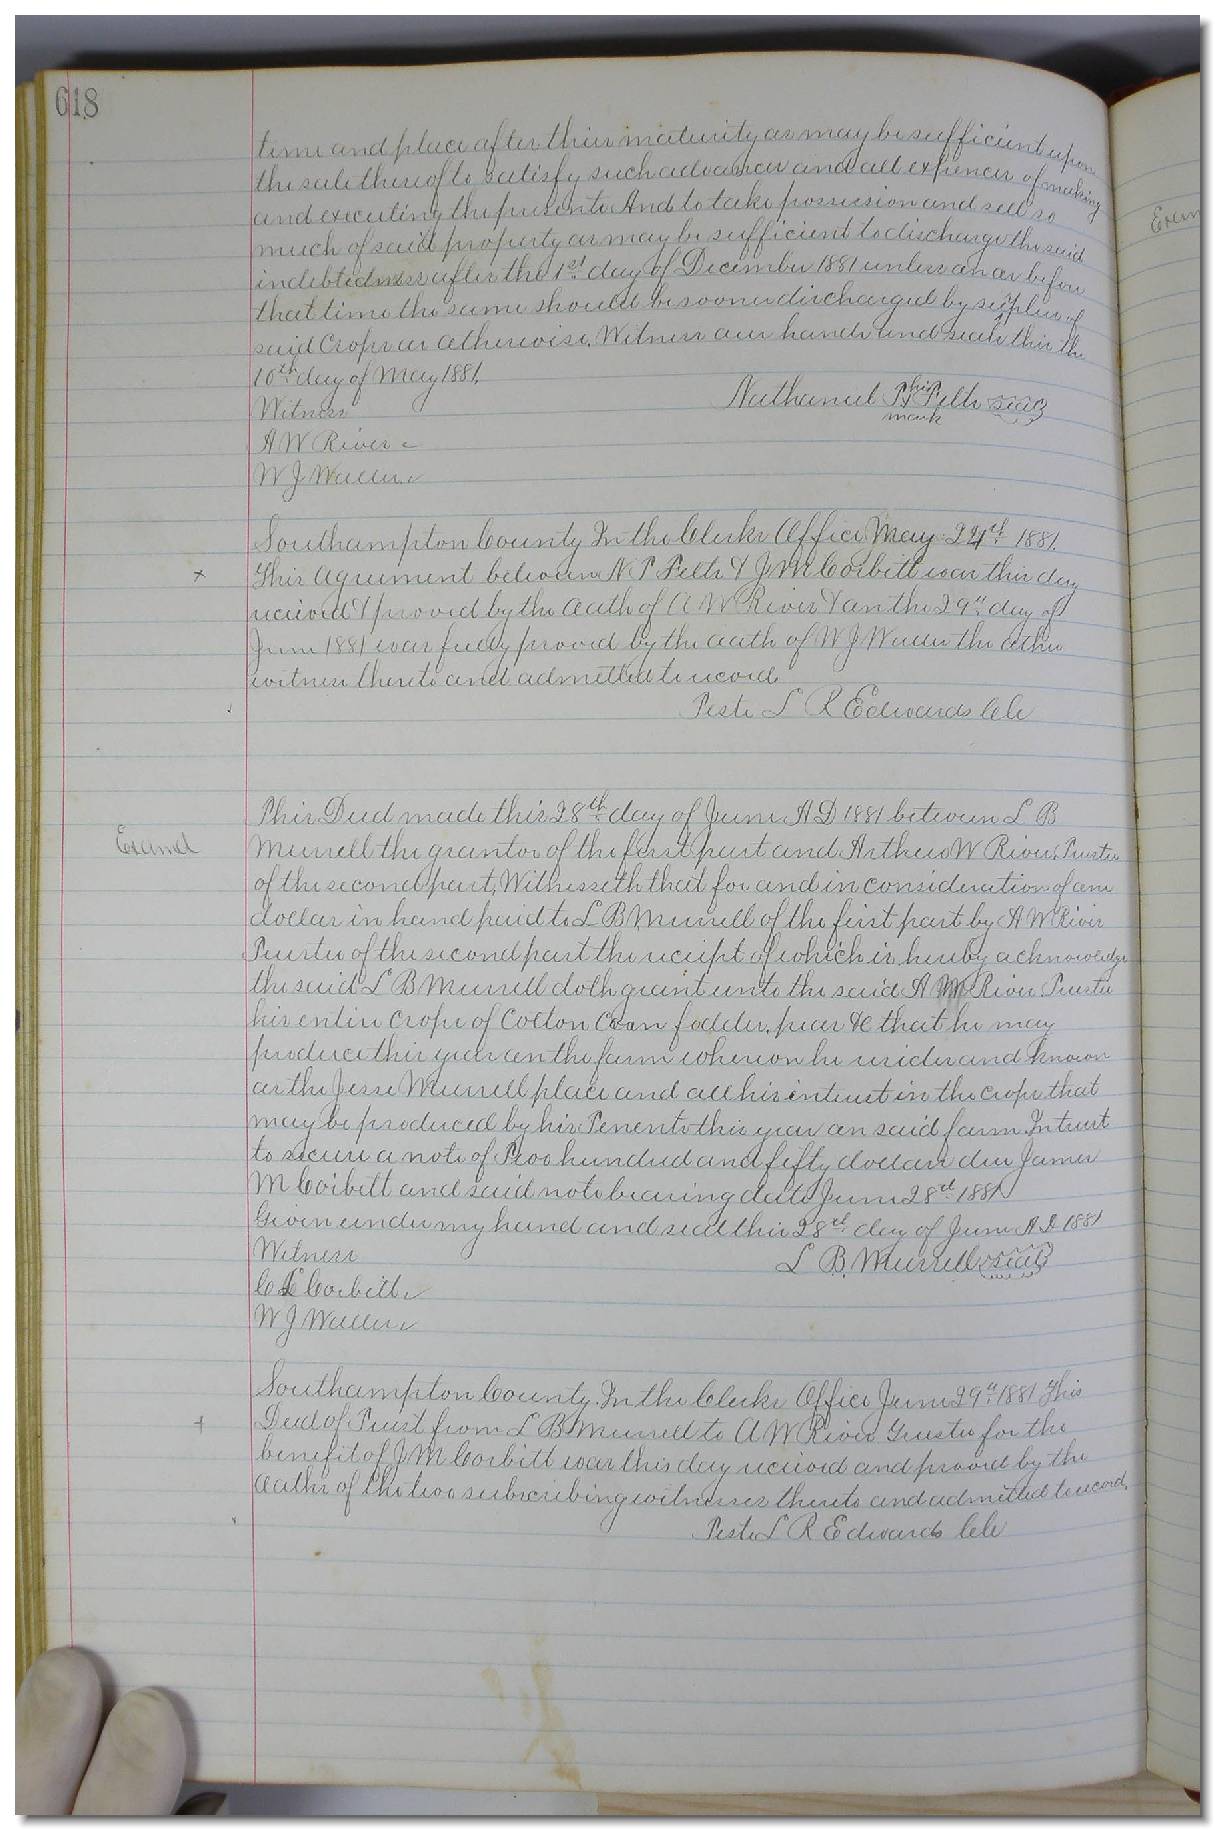 618
time and place after their maturity as may be sufficient upon
the sale thereof to satisfy such advances and all expences of making
and executing the presents And to take possession and sell so
much of said property as may be sufficient to discharge the said
indebtedness after the 1st day of December 1881 unless on or before
that time the same should be sooner discharged by
said Crops or otherwise. Witness our hands and seals this the
10th day of May 1881.
Witness
Nathaniel P his Felts seal
mark
A W River
W J Waller
Southampton County In the Clerks Office May 24th 1881.
x
This Agreement between N P Felts & J M Corbitt was this day
received & proved by the Oath of A W River & on the 29th day of
June 1881 was fully proved by the oath of W J Waller the other
witness thereto and admitted to record
Teste L R Edwards Clk
This Deed made this 28th day of June A D 1881 between L B
Examd
Murrell the grantor of the first part and Arthur W River, Trustee
of the second part, Witnesseth that for and in consideration of one
dollar in hand paid to L B Murrell of the first part by A W River
Trustee of the second part the receipt of which is hereby acknowledge
the said L B Murrell doth grant unto the said A W River Trustee
his entire crops of Cotton Corn fodder, peas &c that he may
produce this year on the farm whereon he resides and known
as the Jesse Murrell place and all his interest in the crops that
may be produced by his Tenents this year on said farm. In trust
to secure a note of Two hundred and fifty dollars due James
M Corbitt and said note bearing date June 28th 1881
Given under my hand and seal this 28th day of June A.D. 1881
Witness
L B. Murrell seal
C L Corbitt
W J Waller
Southampton County. In the Clerks Office June 29th 1881 This
+
Deed of Trust from L B Murrell to A W River Trustee for the
benefit of J M Corbitt was this day received and proved by the
Oaths of the two subscribing witnesses thereto and admitted to record,
Teste L R Edwards Clk